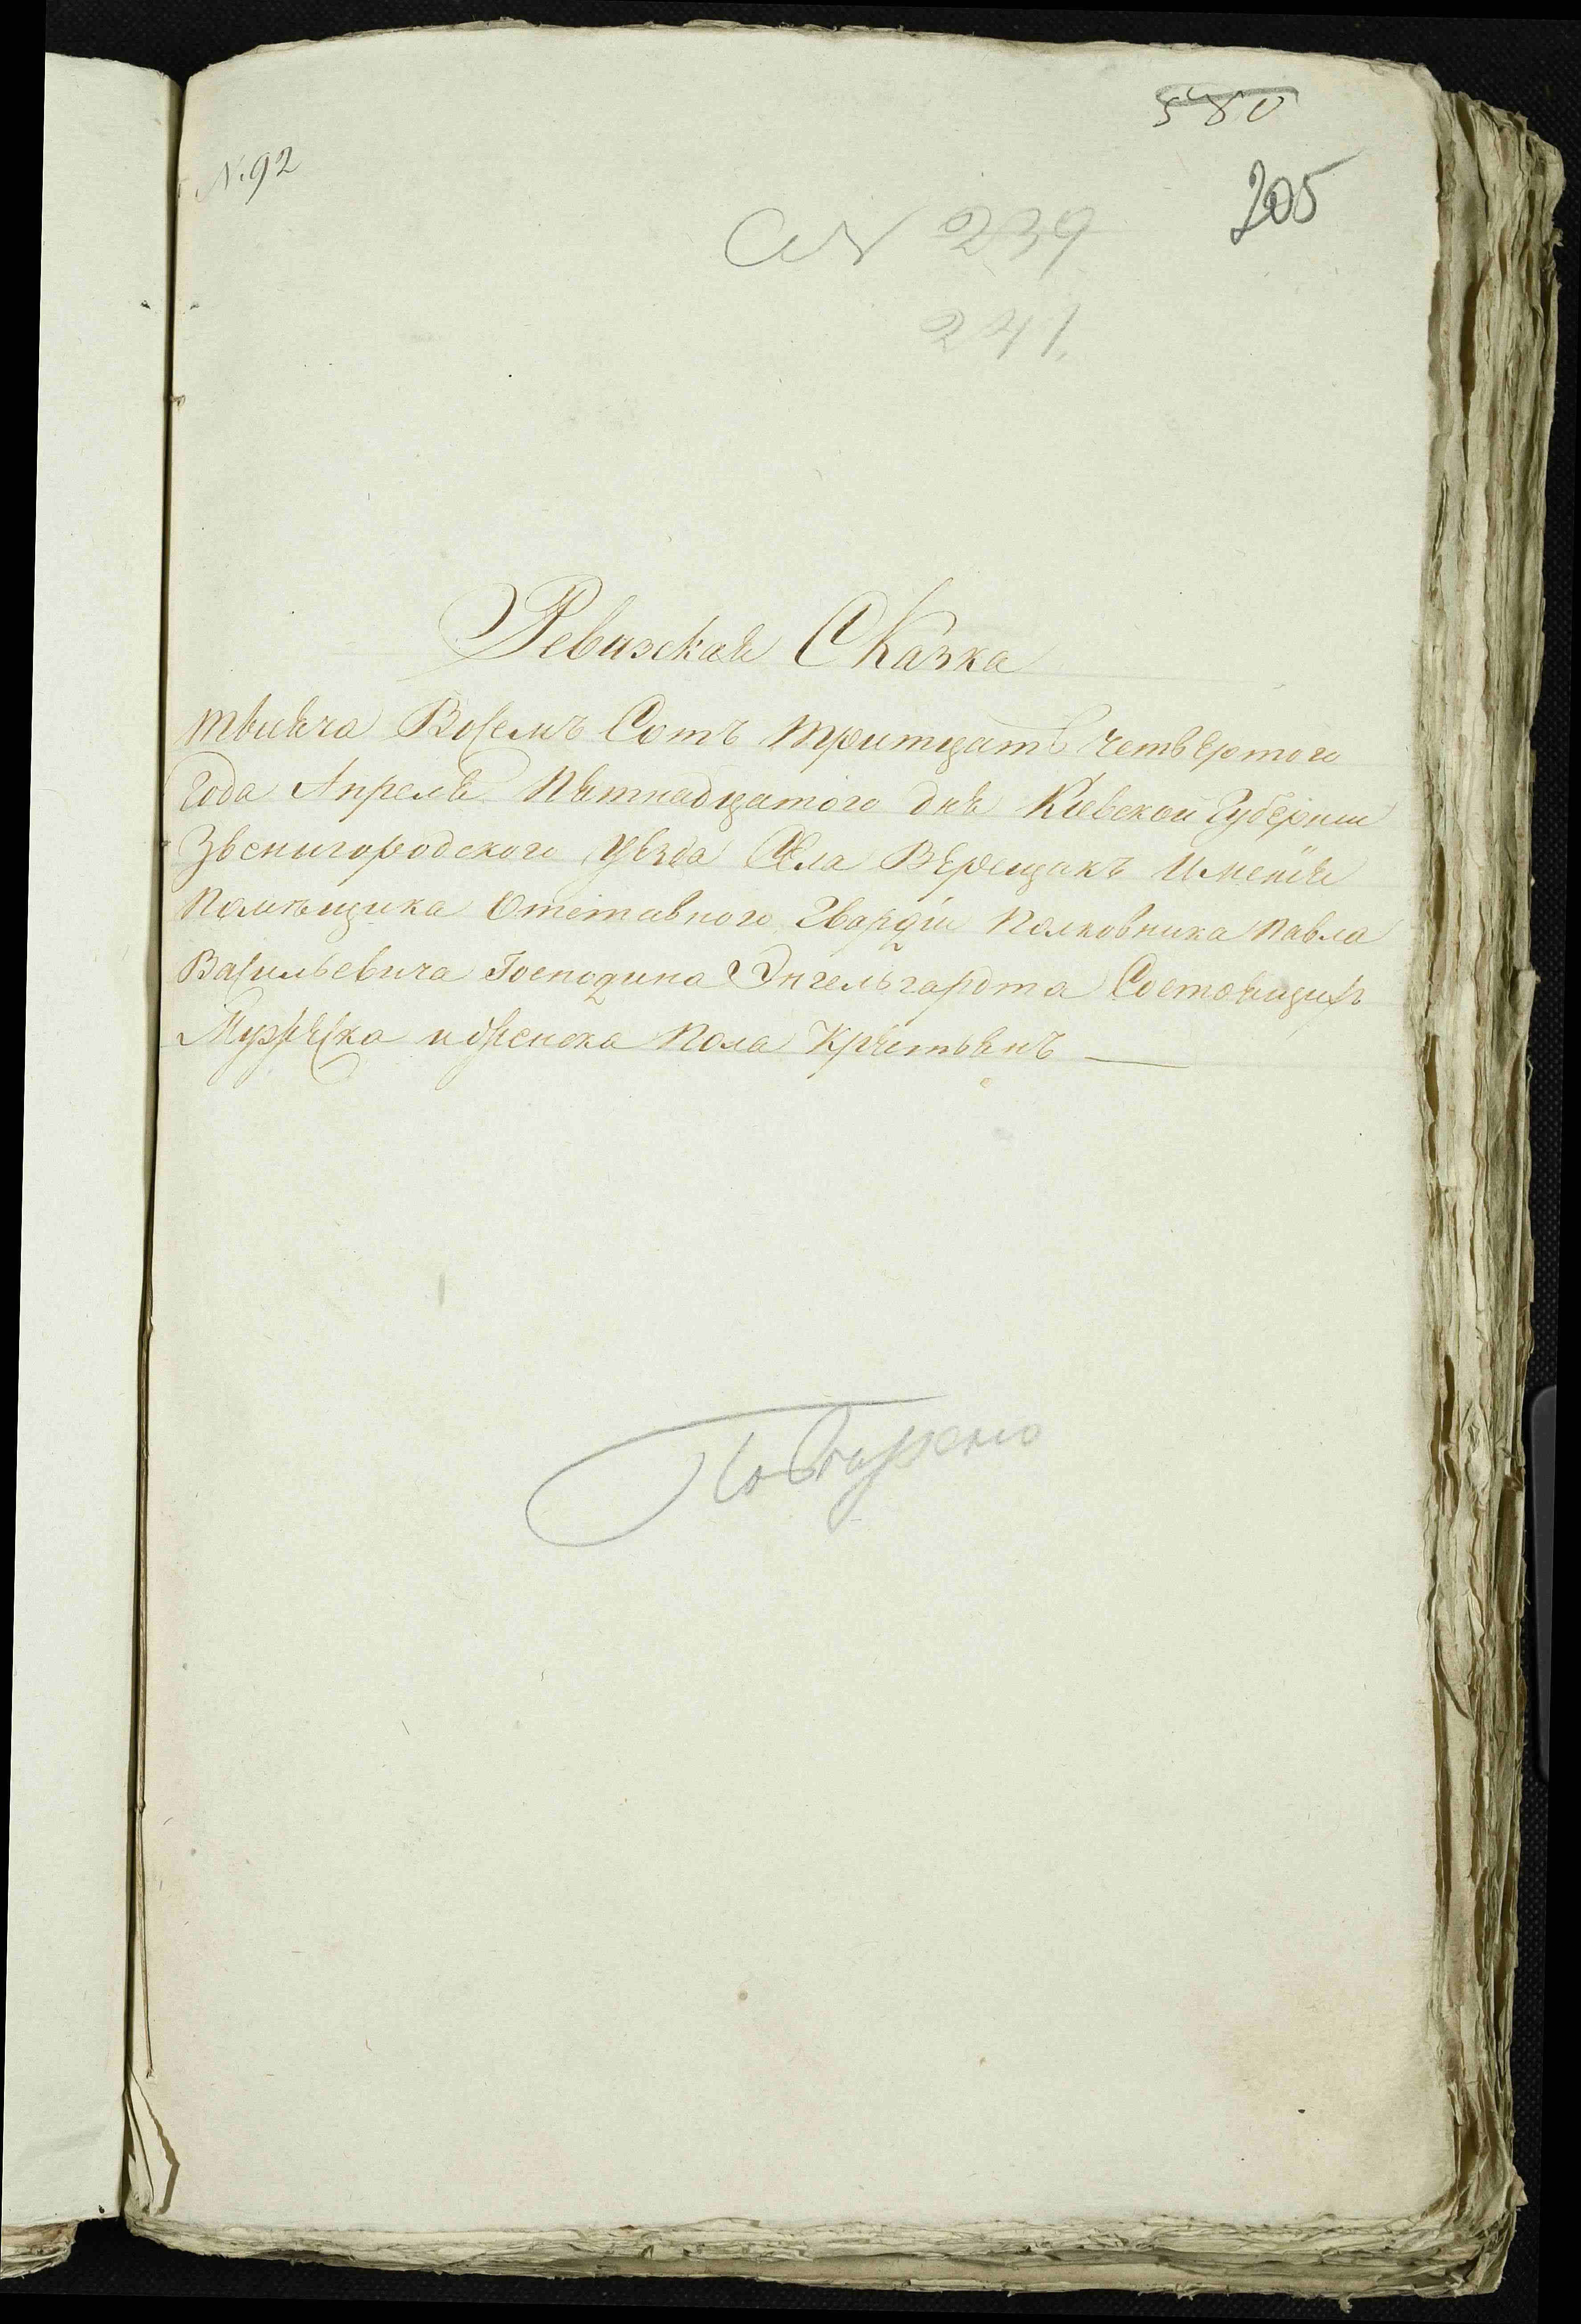 580
№ 92
205
№ 239
241.
Ревизская Сказка
тысяча Восемъ Сотъ тритцать четвертого
Года Апреля Пятнадцатого дня Киевской Губернии
Звенигородского уезда Села Верещакъ Имения
Помѣщика Отставного Гвардіи Полковника Павла
Васильевича Господина Энгельгардта Состоящихъ
Мужеска и женска Пола Крестьянъ